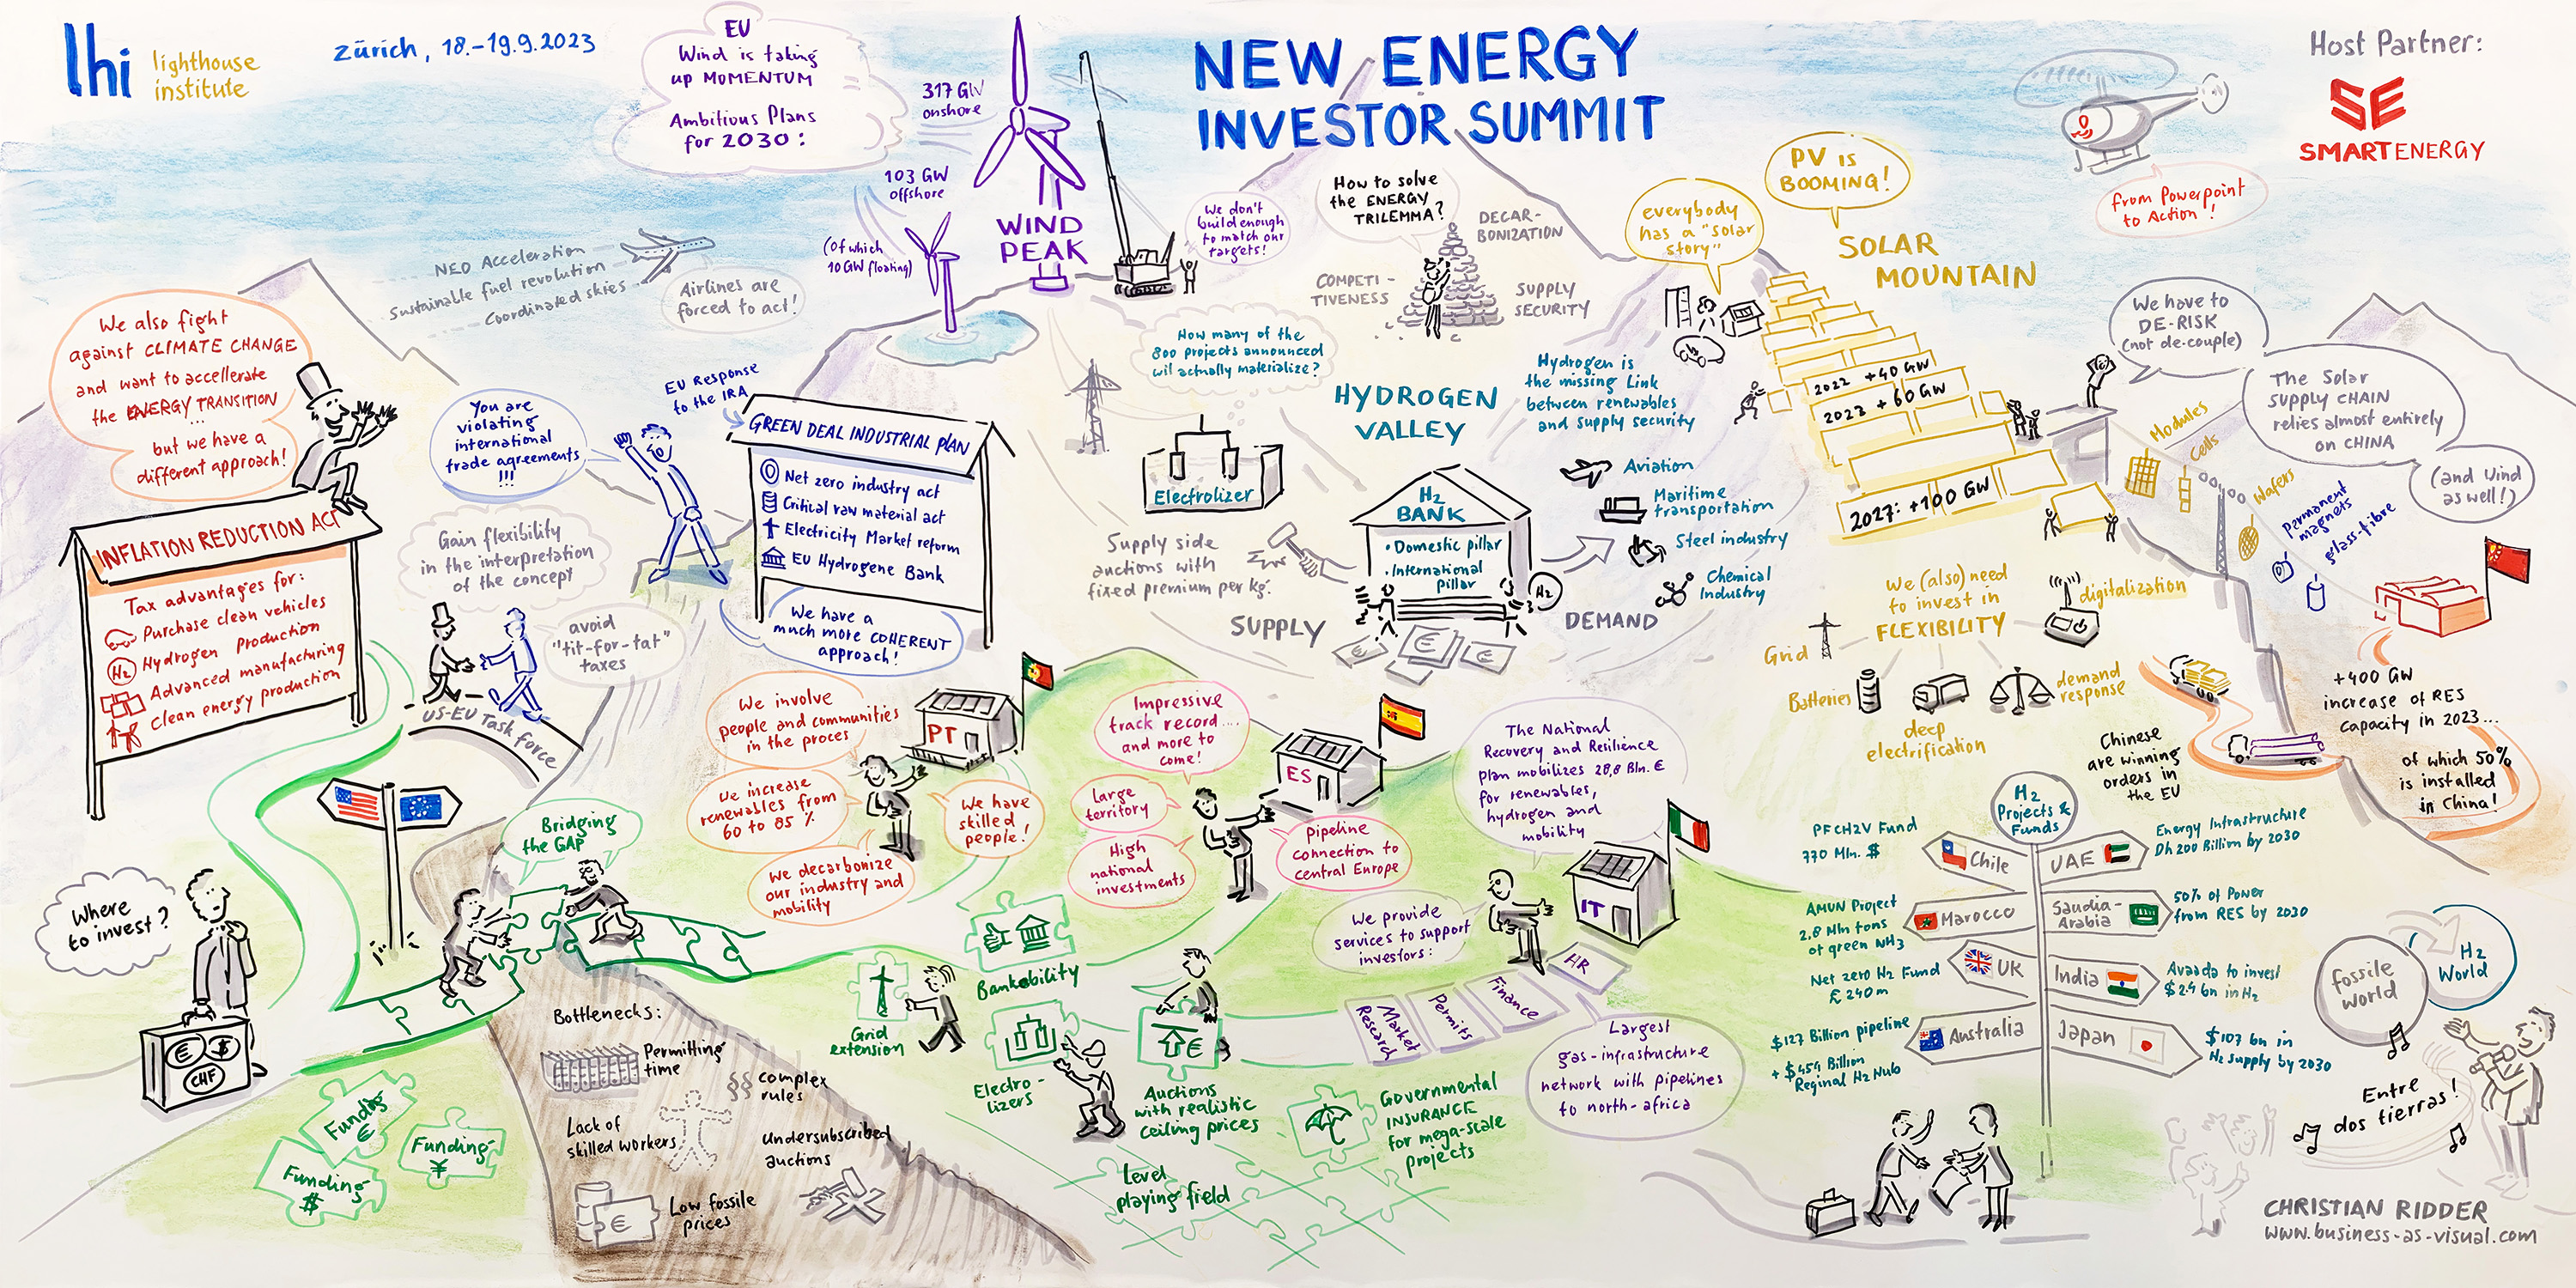 lhi
lighthouse
institute
Zürich, 18.-19.9.2023
EU
Wind is taking
up MOMENTUM
Ambitious Plans
for 2030:
317 GW
onshore
103 GW
offshore
(of which
10 GW floating)
WIND
PEAK
We don't
build enough
to match our
targets!
NEW ENERGY
INVESTOR SUMMIT
Host Partner:
SE
SMARTENERGY
from Powerpoint
to Action!
How to solve
the ENERGY
TRILEMMA?
DECAR-
BONIZATION
COMPETI-
TIVENESS
SUPPLY
SECURITY
everybody
has a "solar
story"
PV is
BOOMING!
SOLAR
MOUNTAIN
2022 +40 GW
2023 +60 GW
2027: +100 GW
We have to
DE-RISK
(not de-couple)
The Solar
SUPPLY CHAIN
relies almost entirely
on CHINA
(and Wind
as well!)
Modules
Cells
Wafers
Permanent
magnets
glass-fibre
NEO Acceleration
Sustainable fuel revolution
Coordinated skies
Airlines are
forced to act!
We also fight
against CLIMATE CHANGE
and want to accellerate
the ENERGY TRANSITION
...
but we have a
different approach!
INFLATION REDUCTION ACT
Tax advantages for:
Purchase clean vehicles
H2
Hydrogen Production
Advanced manufacturing
Clean energy production
You are
violating
international
trade agreements
!!!
EU Response
to the IRA
GREEN DEAL INDUSTRIAL PLAN
Net zero industry act
Critical raw material act
Electricity Market reform
EU Hydrogene Bank
We have a
much more COHERENT
approach!
Gain flexibility
in the interpretation
of the concept
avoid
"tit-for-tat"
taxes
US-EU Task force
How many of the
800 projects announced
wil actually materialize?
HYDROGEN
VALLEY
Hydrogen is
the missing Link
between renewables
and supply security
Electrolizer
Supply side
auctions with
fixed premium per kg.
SUPPLY
H2
BANK
• Domestic pillar
• International
Pillar
€
€
€
H2
DEMAND
Aviation
Maritime
transportation
Steel industry
Chemical
Industry
We (also) need
to invest in
FLEXIBILITY
digitalization
Grid
Batteries
deep
electrification
demand
response
+400 GW
increase of RES
capacity in 2023...
of which 50%
is installed
in China!
Chinese
are winning
orders in
the EU
We involve
people and communities
in the proces
PT
We increase
renewables from
60 to 85 %
We have
skilled
people!
We decarbonize
our industry and
mobility
Impressive
track record....
and more to
come!
ES
Large
territory
High
national
investments
Pipeline
connection to
central Europe
The National
Recovery and Resilience
plan mobilizes 28,8 Bln. €
for renewables,
hydrogen and
mobility
IT
We provide
services to support
investors:
Market
Research
Permits
Finance
HR
Largest
gas-infrastructure
network with pipelines
to north-africa
Where
to invest?
€ $
CHF
Bridging
the GAP
Funding
€
Funding
$
Funding
¥
Bottlenecks:
Permitting
time
§§ complex
rules
Lack of
skilled workers
Undersubscribed
auctions
€
Low fossile
prices
Grid
extension
Bankability
Electro-
lizers
€
Auctions
with realistic
ceiling prices
Level
playing field
Governmental
INSURANCE
for mega-scale
projects
H2
Projects &
Funds
PFCH2V Fund
770 Mln. $
Chile
UAE
Energy Infrastructure
Dh 200 Billion by 2030
AMUN Project
2.8 Mln tons
of green NH3
Marocco
Saudia-
Arabia
50% of Power
from RES by 2030
Net zero H2 Fund
£ 240m
UK
India
Avaada to invest
$2.4 bn in H2
$127 Billion pipeline
Reginal H2 Hub
Australia
Japan
$107 bn in
H2 supply by 2030
fossile
world
H2
World
Entre
dos tierras!
CHRISTIAN RIDDER
www.business-as-visual.com